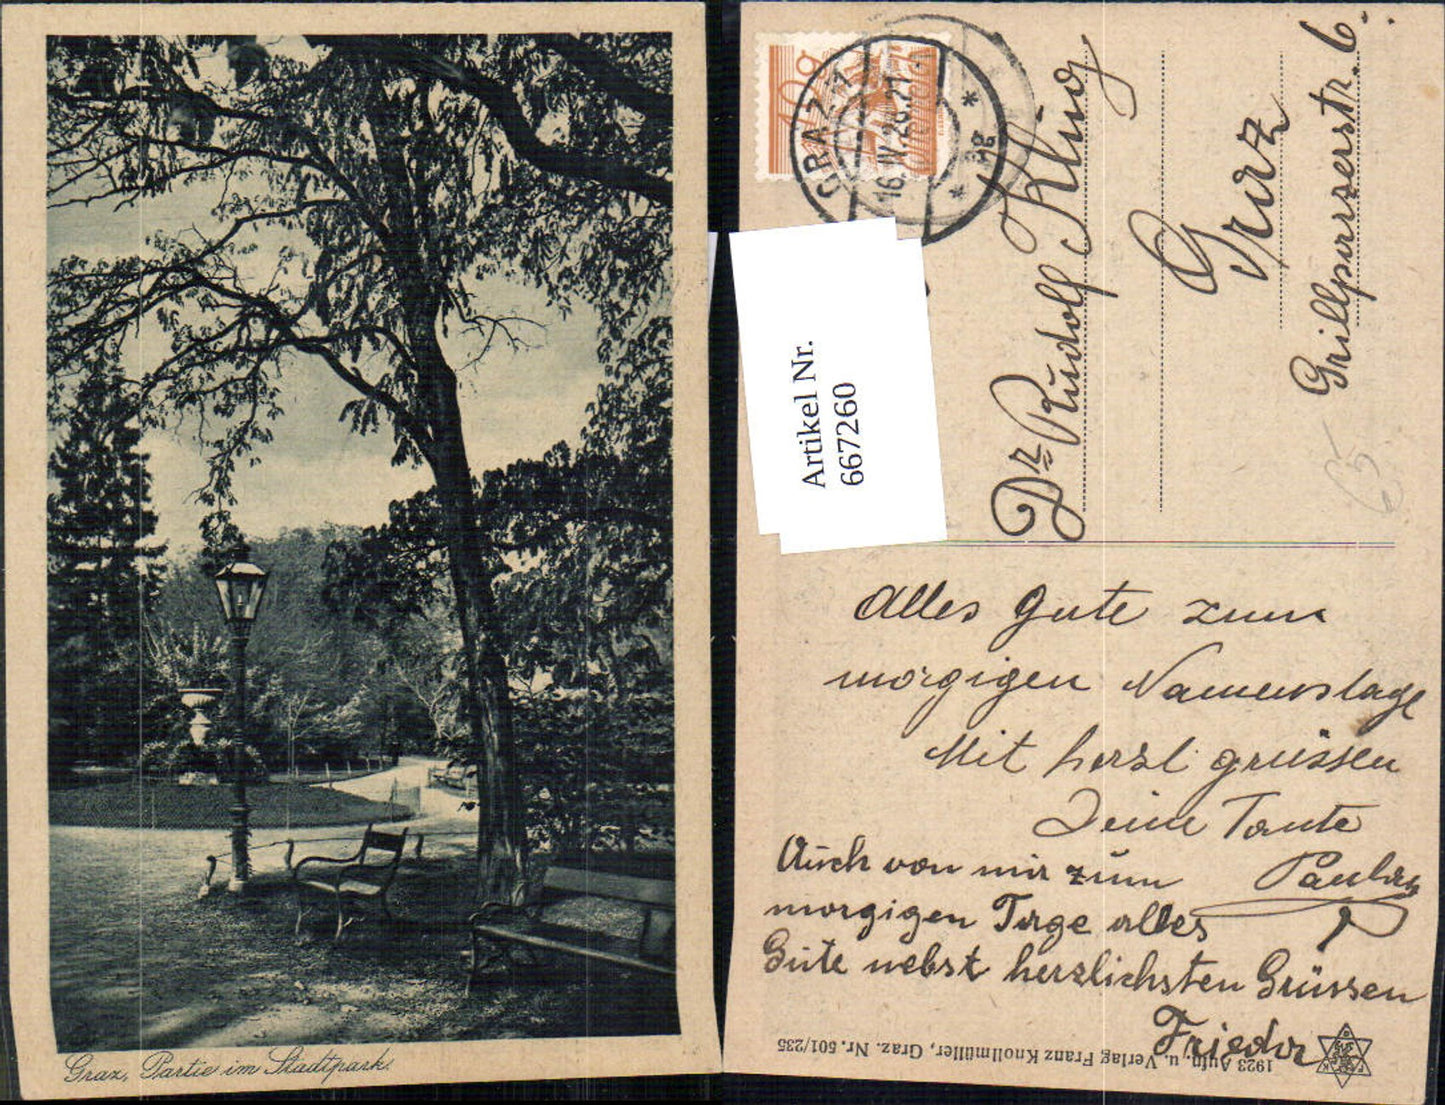 Graz, Partie im Stadtpark.
10g
GRAZ 1
16.IV.26.21
* 8g *
Artikel Nr.
667260
Dr. Rudolf Klug
Graz
Grillparzerstr. 6.
65
Alles Gute zum
morgigen Namenstage
Mit herzl grüssen
Deine Tante
Auch von mir zum
morgigen Tage alles
Gute nebst herzlichsten Grüssen
1923 Aufn. u. Verlag Franz Knollmüller, Graz. Nr. 501/235